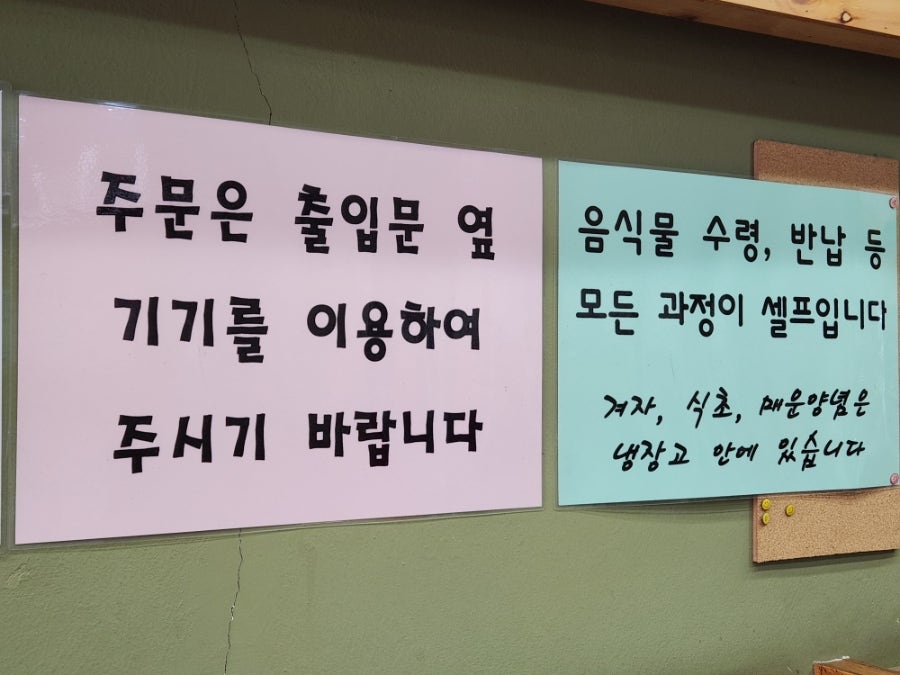 주문은 출입문 옆
기기를 이용하여
주시기 바랍니다
음식물 수령, 반납 등
모든 과정이 셀프입니다
겨자, 식초, 매운양념은
냉장고 안에 있습니다